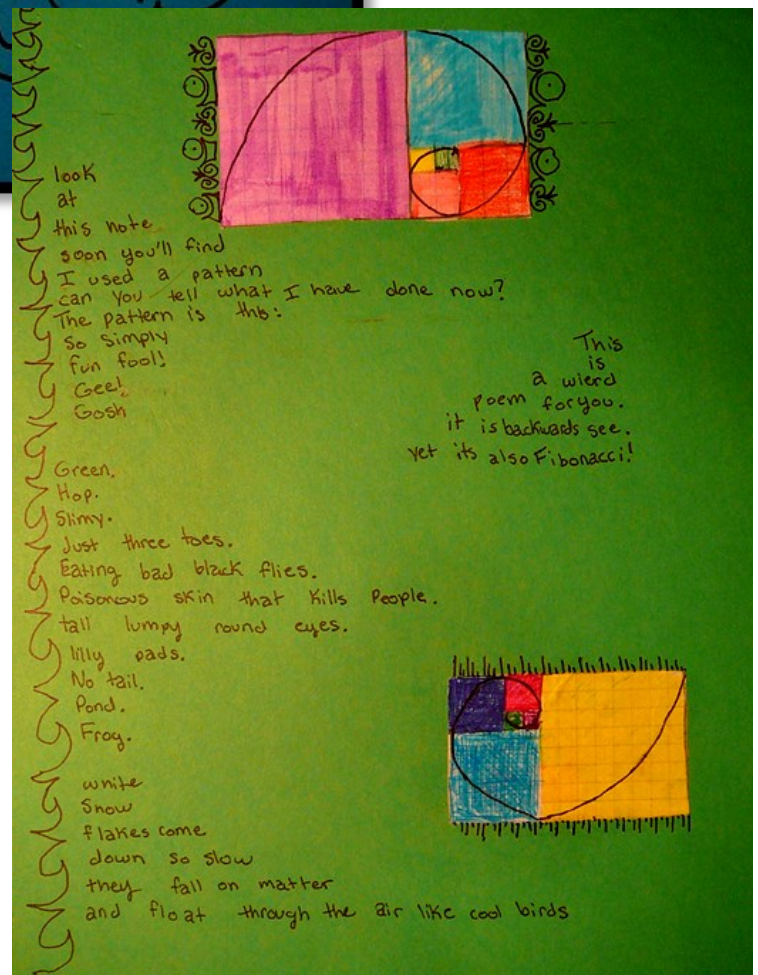 look
at
this note
soon you'll find
I used a pattern
can you tell what I have done now?
The pattern is this:
So simply
fun fool!
Gee!
Gosh
This
is
a wierd
poem for you.
it is backwards see.
yet its also Fibonacci!
Green.
Hop.
Slimy.
Just three toes.
Eating bad black flies.
Poisonous skin that kills People.
tall lumpy round eyes.
lilly pads.
No tail.
Pond.
Frog.
white
Snow
flakes come
down so slow
they fall on matter
and float through the air like cool birds